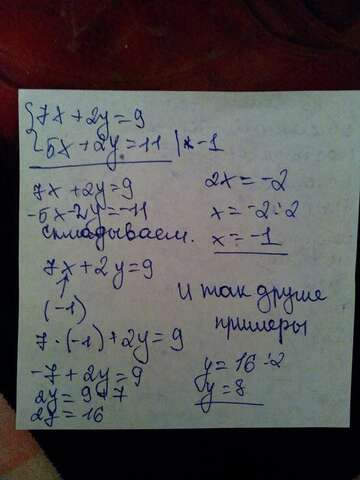 7x + 2y = 9
5x + 2y = 11 | × -1
7x + 2y = 9
-5x - 2y = -11
складываем.
2x = -2
x = -2 : 2
x = -1
7x + 2y = 9
(-1)
7 · (-1) + 2y = 9
-7 + 2y = 9
2y = 9 + 7
2y = 16
и так другие
примеры
y = 16 : 2
y = 8